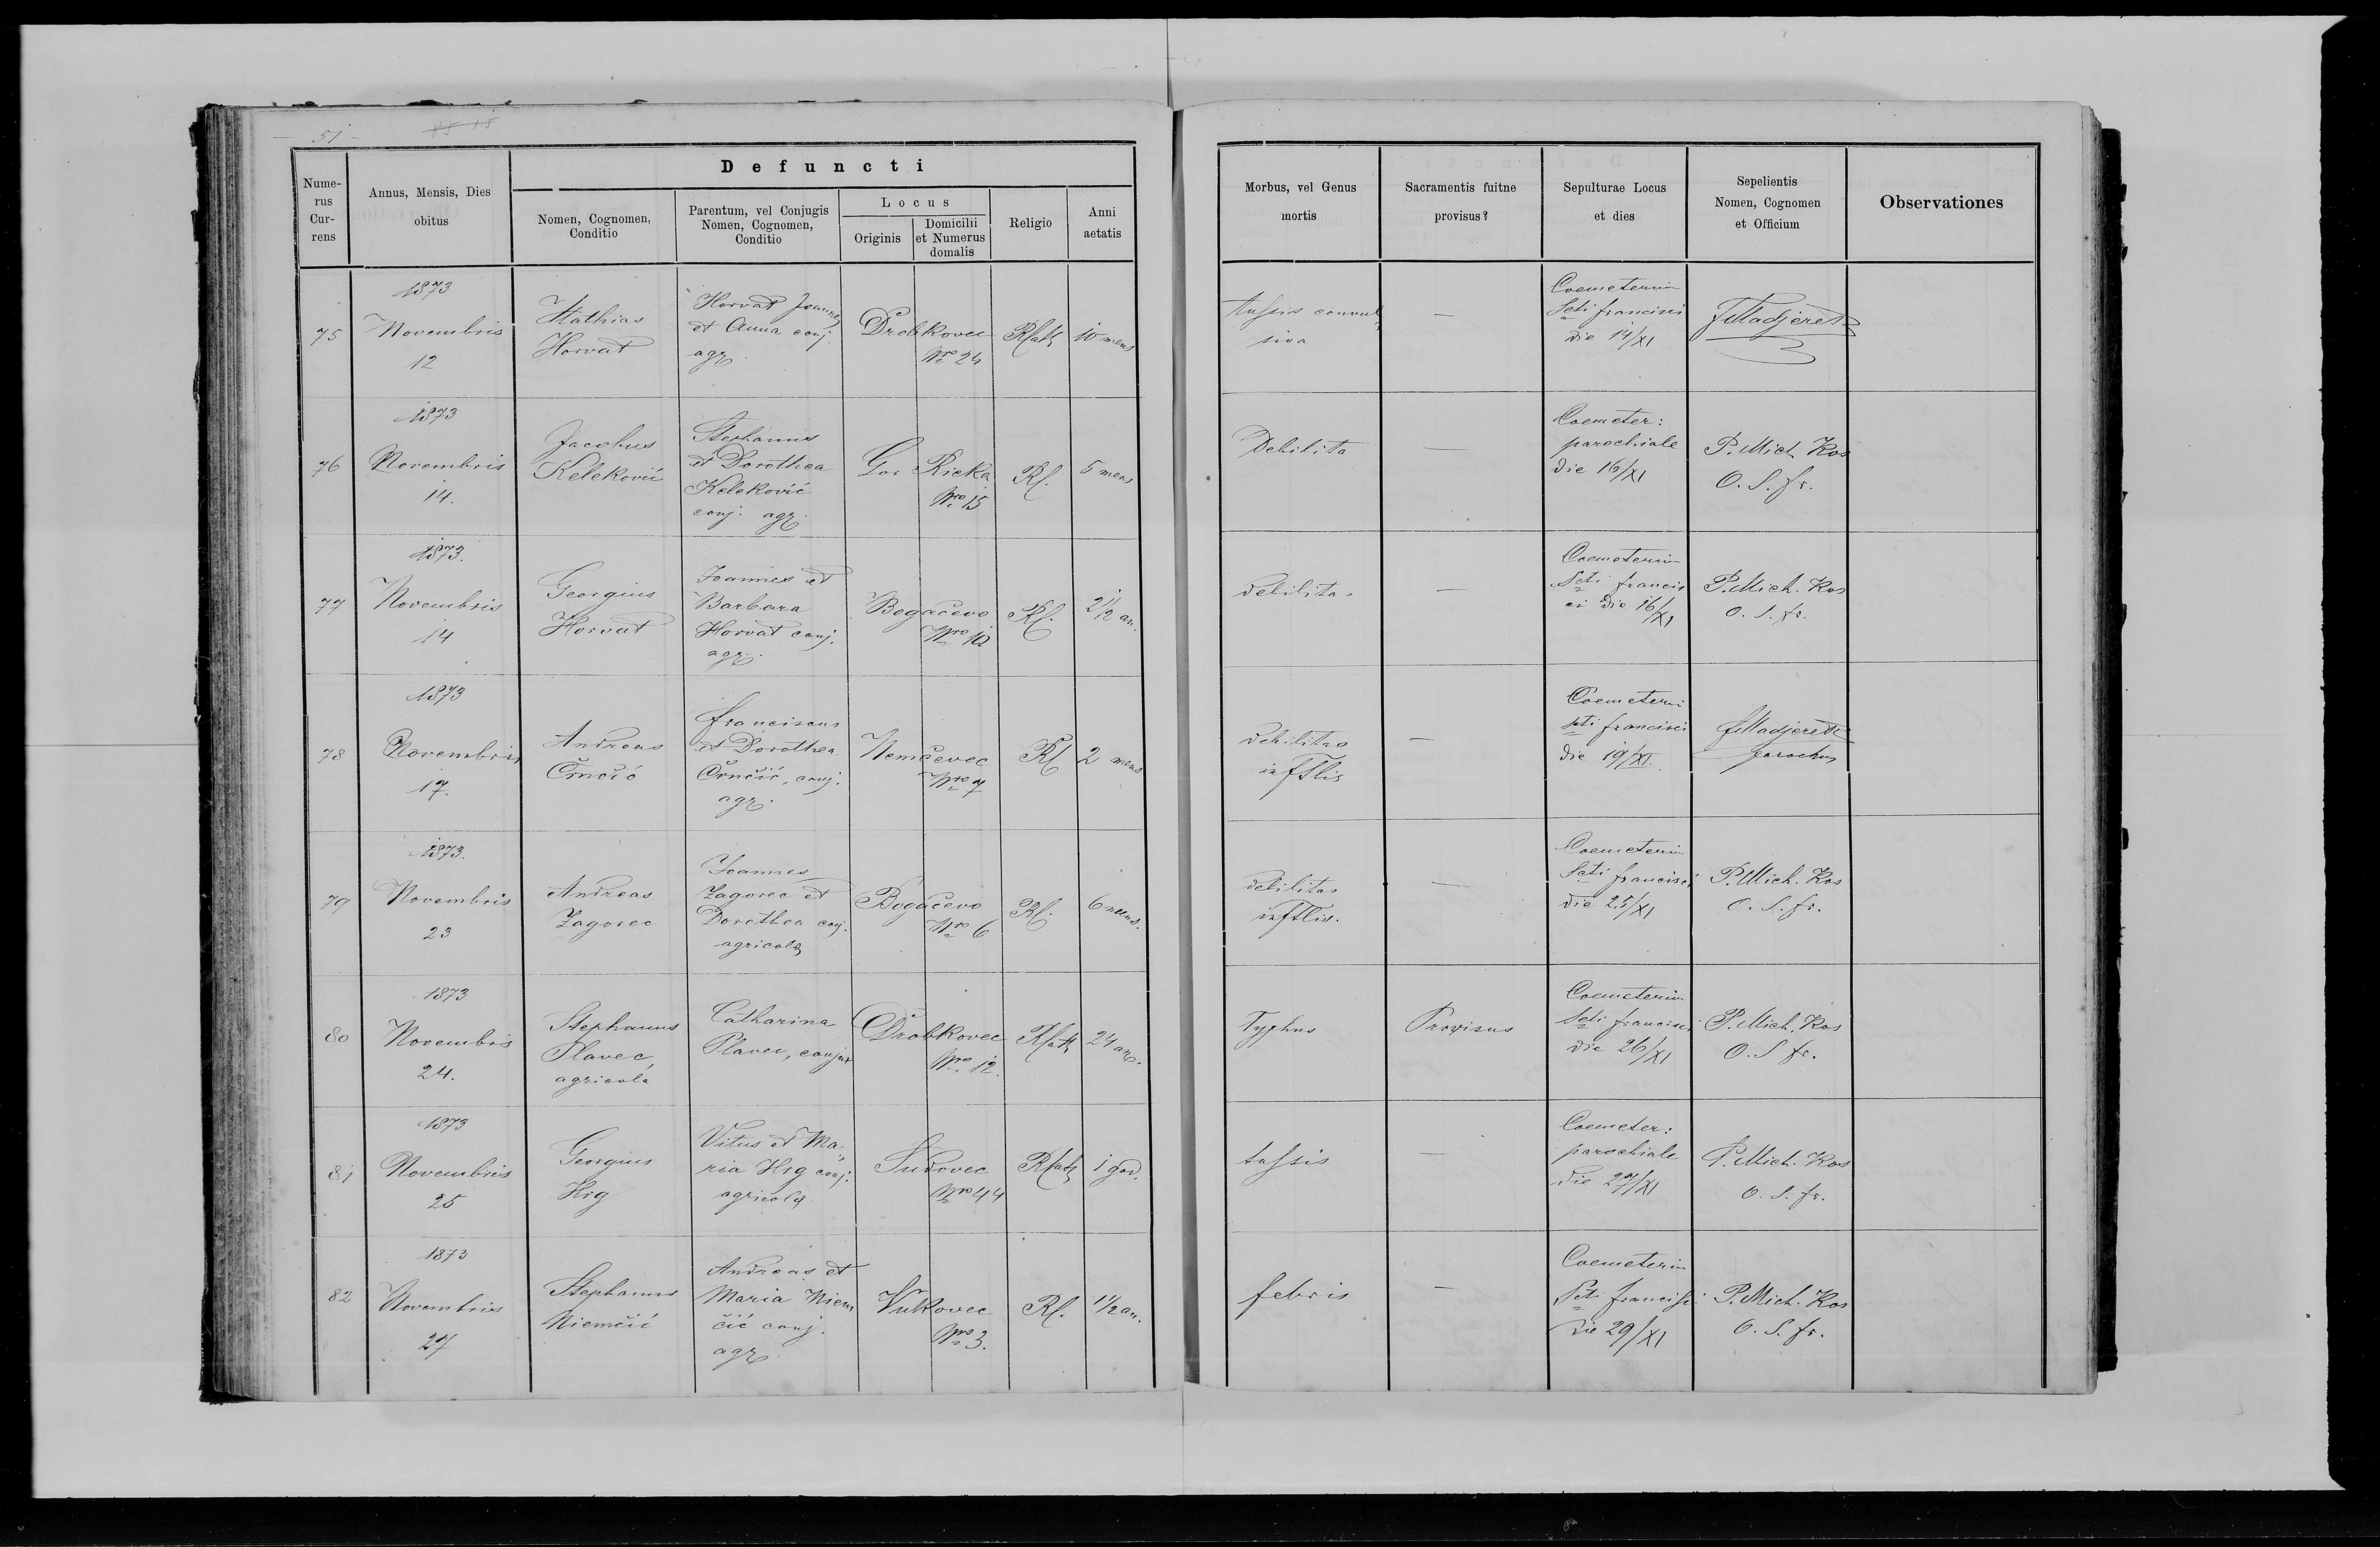 51
Defuncti
Nume-
rus
Cur-
rens
Annus, Mensis, Dies
obitus
Nomen, Cognomen,
Conditio
Parentum, vel Conjugis
Nomen, Cognomen,
Conditio
Locus
Originis
Domicilii
et Numerus
domalis
Religio
Anni
aetatis
Morbus, vel Genus
mortis
Sacramentis fuitne
provisus?
Sepulturae Locus
et dies
Sepelientis
Nomen, Cognomen
et Officium
Observationes
75
1873
Novembris
12
Mathias
Horvat
Horvat Joannes
et Anna conj.
agr.
Drobkovec
Nro 24
10 mens
tussis convul
siva
—
Coemeterium
Scti francisci
die 14/XI
76
1873
Novembris
14.
Jacobus
Keleković
Stephanus
et Dorothea
Keleković
conj. agr.
Gor Rieka
Nro 15
5 mens
Debilita
—
Coemeter:
parochiale
die 16/XI
P. Mich Kos
O. S. fr.
77
1873.
Novembris
14
Georgius
Horvat
Joannes et
Barbara
Horvat conj.
agr.
Bogačevo
Nro 10
2 1/2 an.
debilitas
—
Coemeterium
Scti francis
ci die 16/XI
P. Mich. Kos
O. S. fr.
78
1873
Novembris
17.
Andreas
Črnčić
franciscus
et Dorothea
Črnčić, conj.
agr.
Nemčevec
Nro 7
2 mens
debilitas
—
Coemeteri
scti francisci
die 19/XI.
parochus
79
1873.
Novembris
23
Andreas
Zagorec
Joannes
Zagorec et
Dorothea conj.
agricola
Bogačevo
Nro 6
6 mens.
debilitas
—
Coemeterium
Scti francisci
die 25/XI
P. Mich. Kos
O. S. fr.
80
1873
Novembris
24.
Stephanus
Plavec
agricola
Catharina
Plavec, conjux
Drobkovec
Nro 12.
24 an.
Typhus
Provisus
Coemeterium
Scti francisci
die 26/XI
P. Mich. Kos
O. S fr.
81
1873
Novembris
25
Georgius
Hrg
Vitus et Ma
ria Hrg conj.
agricola
Sudovec
Nro 44
1 god.
tussis
—
Coemeter:
parochiale
die 27/XI
P. Mich. Kos
O. S. fr.
82
1873
Novembris
27
Stephanus
Niemčić
Andreas et
Maria Niem
čić conj.
agr.
Vukovec
Nro 3.
1 1/2 an.
febris
—
Coemeterium
Scti francisci
die 29/XI
P. Mich. Kos
O. S. fr.